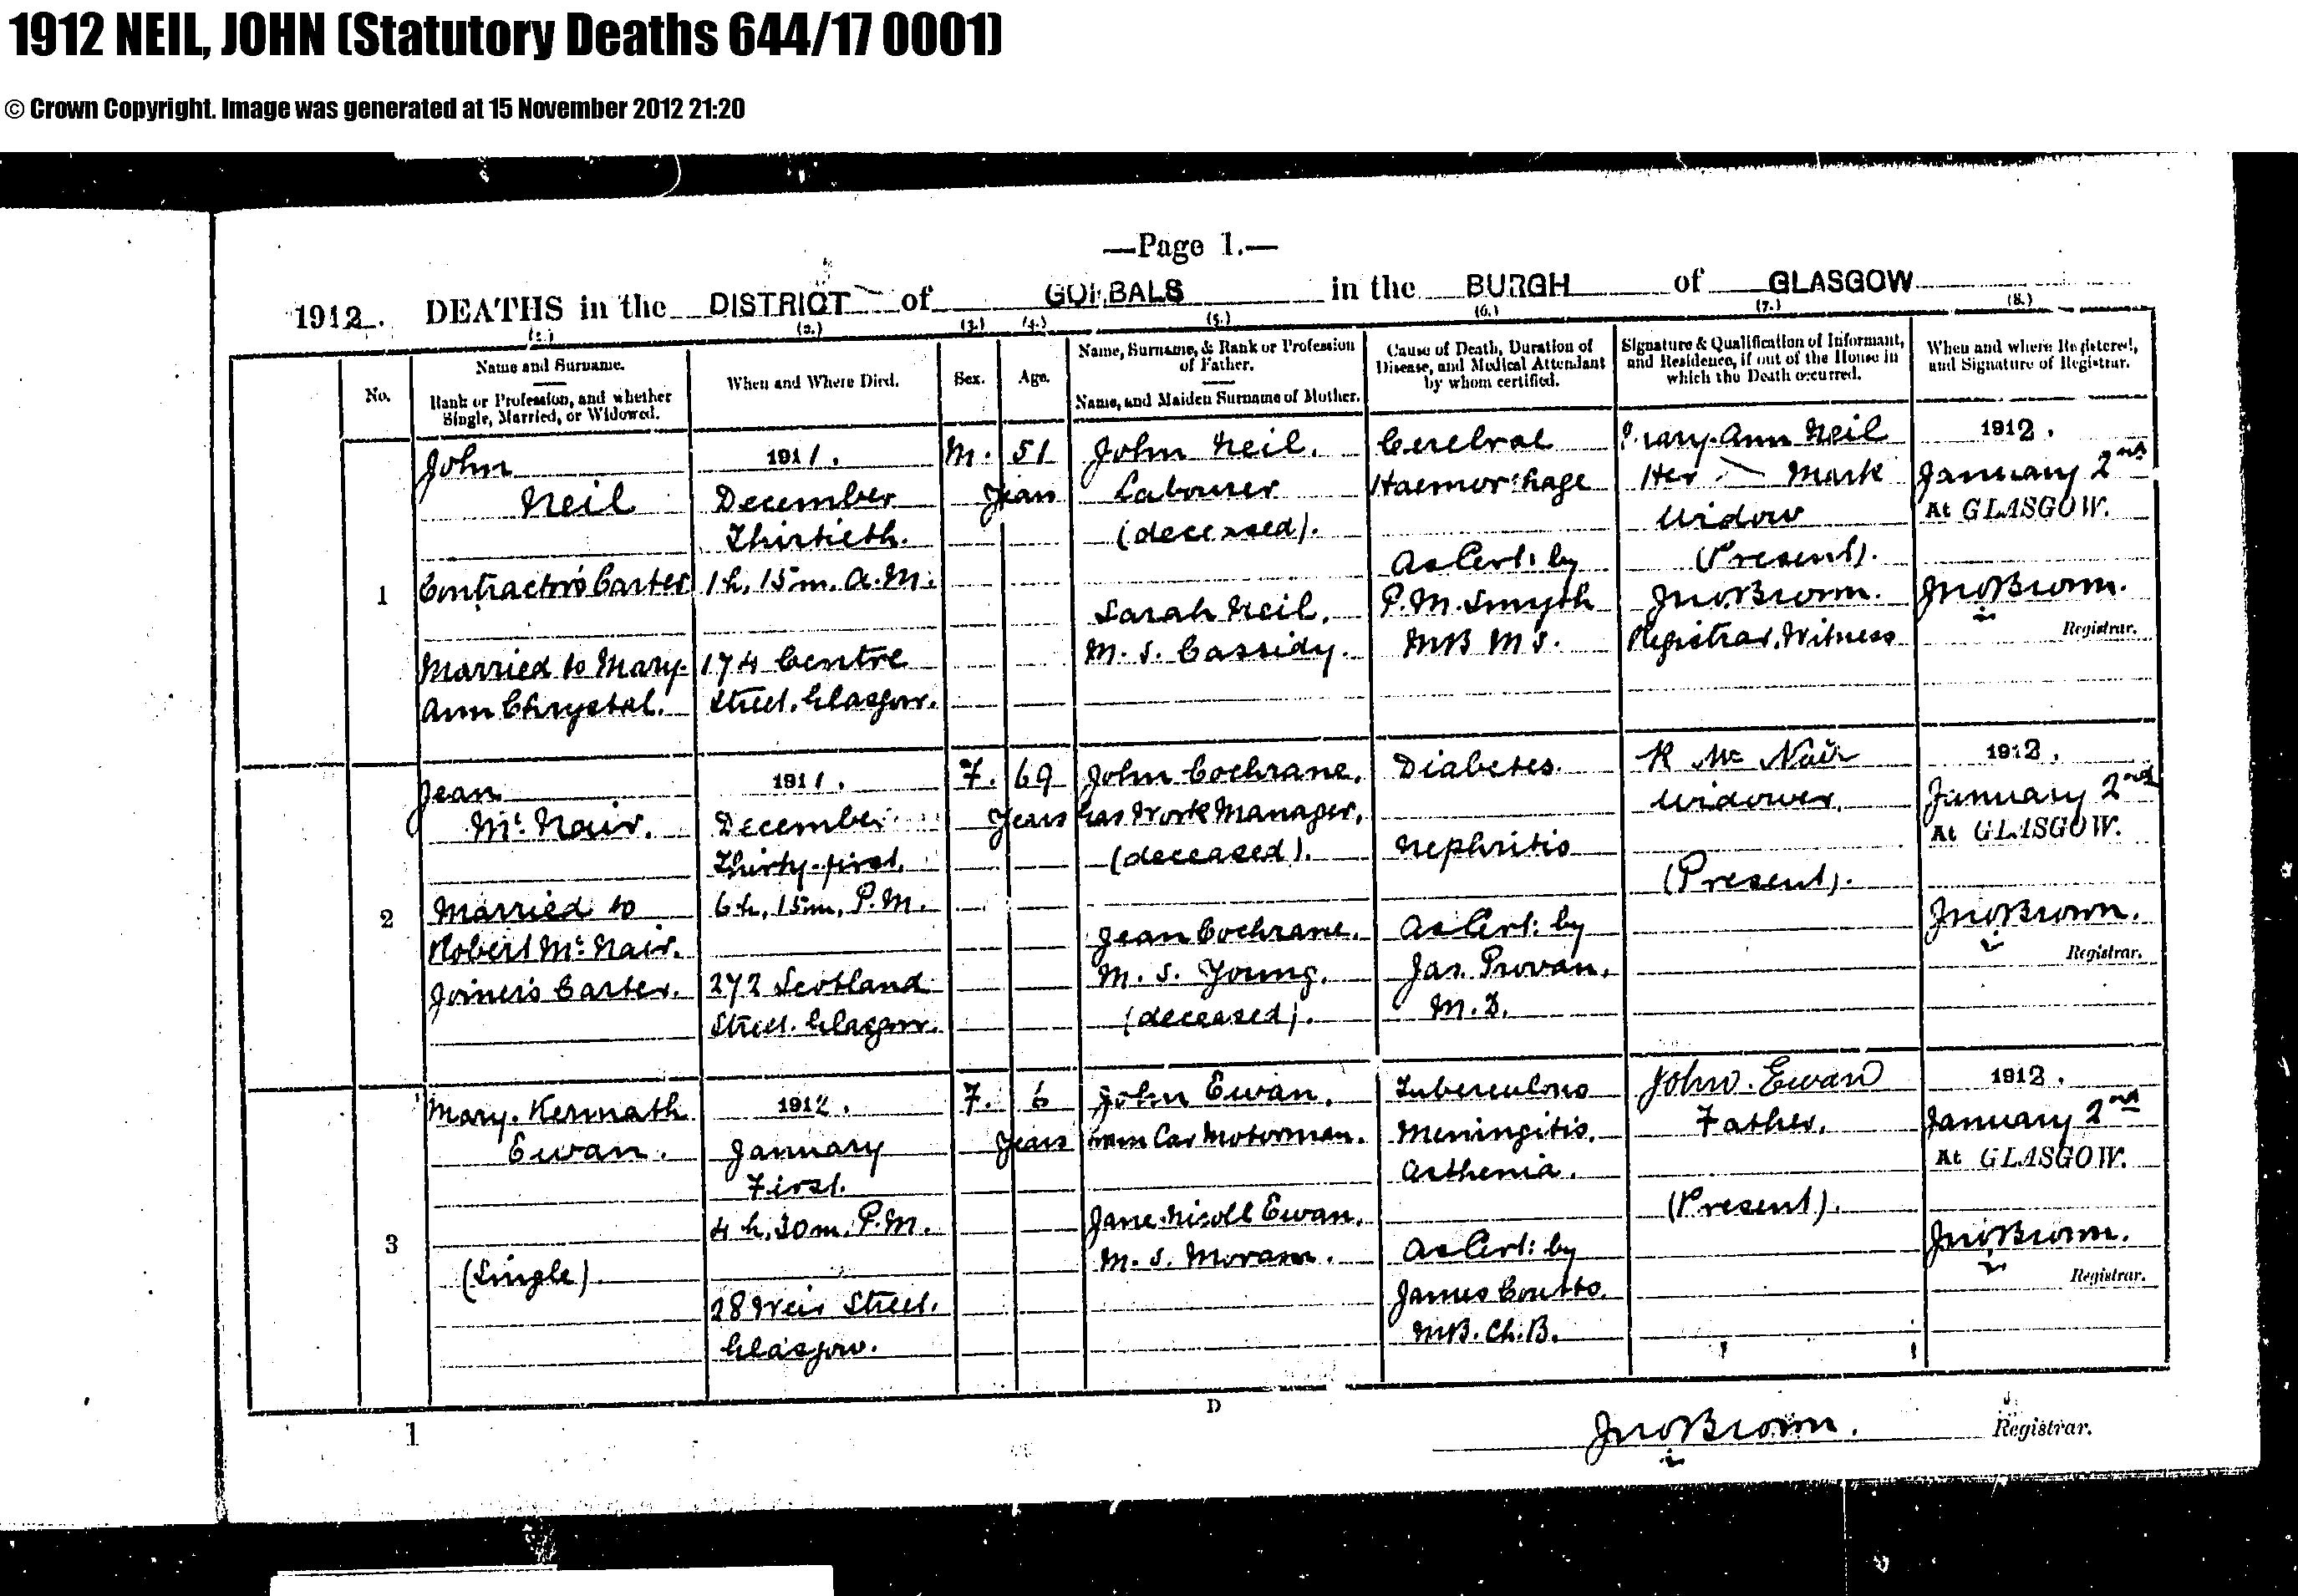 1912 NEIL, JOHN (Statutory Deaths 644/17 0001)
© Crown Copyright. Image was generated at 15 November 2012 21:20
—Page 1.—
1912. DEATHS in the DISTRICT of GORBALS in the BURGH of GLASGOW
(1.) (2.) (3.) (4.) (5.) (6.) (7.) (8.)
No.
Name and Surname.
Rank or Profession, and whether
Single, Married, or Widowed.
When and Where Died.
Sex.
Age.
Name, Surname, & Rank or Profession
of Father.
Name, and Maiden Surname of Mother.
Cause of Death, Duration of
Disease, and Medical Attendant
by whom certified.
Signature & Qualification of Informant,
and Residence, if out of the House in
which the Death occurred.
When and where Registered,
and Signature of Registrar.
1
John
Neil
Contractor's Carter
Married to Mary-
Ann Chrystal.
1911.
December
Thirtieth.
1h. 15m. A.M.
174 Centre
Street. Glasgow.
M.
51
Years
John Neil.
Labourer
(deceased).
Sarah Neil.
M. S. Cassidy.
Cerebral
Haemorrhage
As Cert: by
P. M. Smyth
MB MS.
Mary-Ann Neil
Her Mark
Widow
(Present).
Jno Brown.
Registrar. Witness
1912.
January 2nd
At GLASGOW.
Jno Brown.
Registrar.
2
Jean
McNair.
Married to
Robert McNair.
Joiner's Carter.
1911.
December
Thirty-first.
6h. 15m. P.M.
272 Scotland
Street. Glasgow.
F.
69
Years
John Cochrane.
Gas Work Manager.
(deceased).
Jean Cochrane.
M. S. Young.
(deceased).
Diabetes.
Nephritis
As Cert: by
Jas. Provan.
M.D.
R McNair
Widower.
(Present).
1912.
January 2nd
At GLASGOW.
Jno Brown.
Registrar.
3
Mary. Kermath
Ewan.
(Single)
1912.
January
First.
4h. 30m. P.M.
28 Weir Street.
Glasgow.
F.
6
Years
John Ewan.
Tram Car Motorman.
Jane Nicoll Ewan.
M. S. Moram.
Tuberculous
Meningitis.
Asthenia.
As Cert: by
James Coutts.
MB. Ch.B.
John Ewan
Father.
(Present).
1912.
January 2nd
At GLASGOW.
Jno Brown.
Registrar.
1
D
Jno Brown.
Registrar.